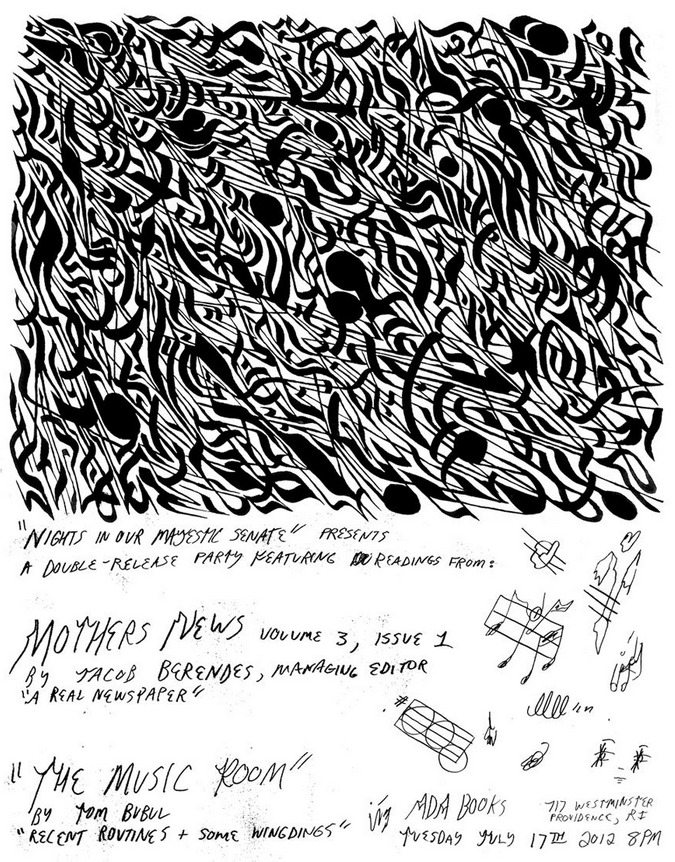 "NIGHTS IN OUR MAJESTIC SENATE" PRESENTS
A DOUBLE-RELEASE PARTY FEATURING READINGS FROM:
MOTHERS NEWS VOLUME 3, ISSUE 1
BY JACOB BERENDES, MANAGING EDITOR
"A REAL NEWSPAPER"
"THE MUSIC ROOM"
BY TOM BUBUL
"RECENT ROUTINES + SOME WINGDINGS"
ADA BOOKS
717 WESTMINSTER
PROVIDENCE, RI
TUESDAY JULY 17TH 2012 8PM